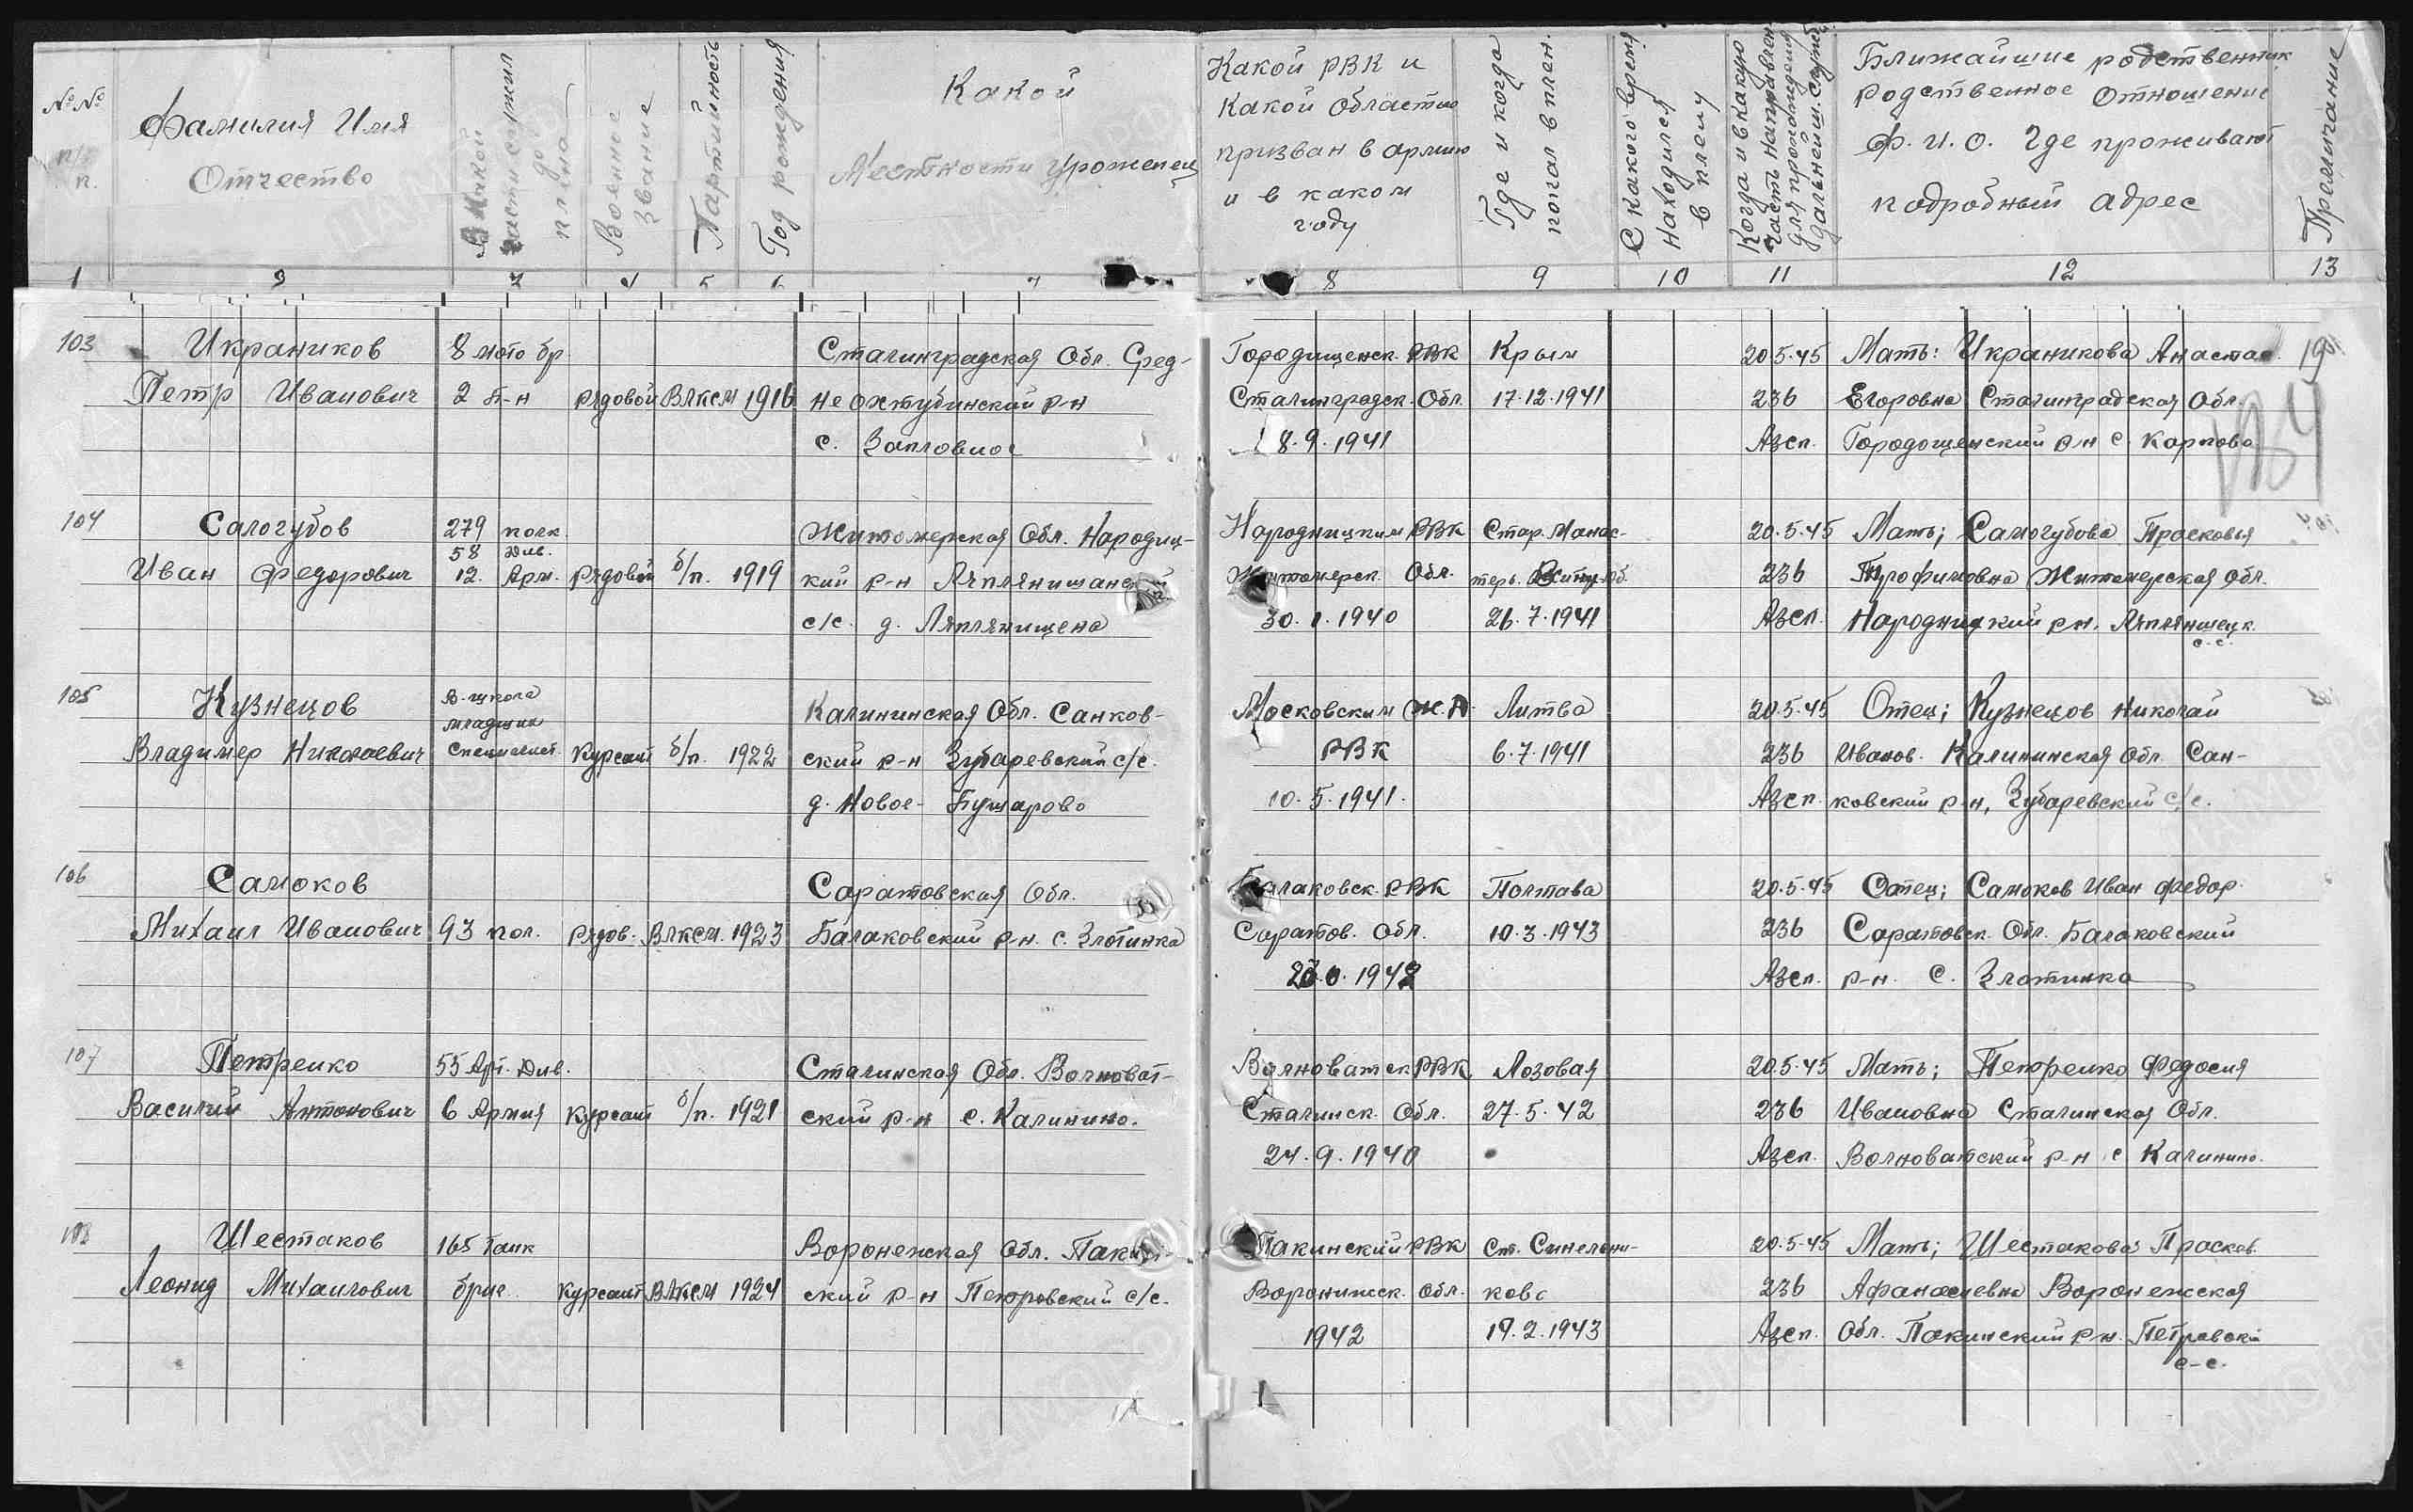 № №
п/п.
Фамилия Имя
Отчество
В какой
части служил
до
плена
Военное
звание
Партийность
Год рождения
Какой
Местности уроженец
Какой РВК и
какой областью
призван в армию
и в каком
году
Где и когда
попал в плен.
С какого время
находился
в плену
Когда и в какую
часть направлен
для прохождения
дальнейш. службы
Ближайшие родственник
родственное отношение
Ф. И. О. Где проживают
подробный адрес
Примечание
1 2 3 4 5 6 7 8 9 10 11 12 13
103 Икраников 8 мото бр Сталинградская Обл. Сред- Городищенск. РВК Крым 20.5.45 Мать: Икраникова Анастас.
Петр Иванович 2 б-н рядовой ВЛКСМ 1916 не Охтубинский р-н Сталинградск. Обл. 17.12.1941 236 Егоровна Сталинградская Обл.
с. Заплавное 8.9.1941 Азсп. Городощенский р-н с. Карпово
104 Салогубов 279 полк. Житомерская Обл. Народиц- Народницким РВК Стар. Манас- 20.5.45 Мать; Салогубова Прасковья
58 Див.
Иван Федорович 12. Арм. рядовой б/п. 1919 кий р-н Обл. терь. 236 Трофимовна Житомерская обл.
с/с. д. Ляплянищена 30.1.1940 26.7.1941 Азсп. Народницкий р-н.
с.с.
105 Кузнецов В-школа Калининская Обл. Санков- Московским Ж.Д. Литва 20.5.45 Отец; Кузнецов Николай
младших
Владимер Николаевич специалист. Курсант б/п. 1922 ский р-н Зубаревский с/с. РВК 6.7.1941 236 Иванов. Калининская Обл. Сан-
д. Новое- Бушарово 10.5.1941. Азсп. ковский р-н, Зубаревский с/с.
106 Самоков Саратовская Обл. Балаковск. РВК Полтава 20.5.45 Отец; Самоков Иван Федор.
Михаил Иванович 93 пол. рядов. ВЛКСМ. 1923 Балаковский р-н. с. Злотинка Саратов. Обл. 10.3.1943 236 Саратовск. Обл. Балаковский
1942 Азсп. р-н. с. Злотинка
107 Петренко 55 Арт. Див. Сталинская Обл. Волноват- Волноватск РВК Лозовая 20.5.45 Мать; Петренко Федосия
Василий Антонович 6 Армия Курсант б/п. 1921 ский р-н с. Калинино. Сталинск. Обл. 27.5.42 236 Ивановна Сталинская Обл.
24.9.1940 Азсп. Волноватский р-н с Калинино.
108 Шестаков 165 танк Воронежская Обл. Пакинский РВК Ст. Синельни- 20.5.45 Мать; Шестакова Прасков.
Леонид Михаилович бриг. Курсант ВЛКСМ 1924 ский р-н Петровский с/с. Воронижск. Обл. ково 236 Афанасиевна Воронежская
1942 19.2.1943 Азсп. Обл. Пакинский р-н. Петровски
с-с.